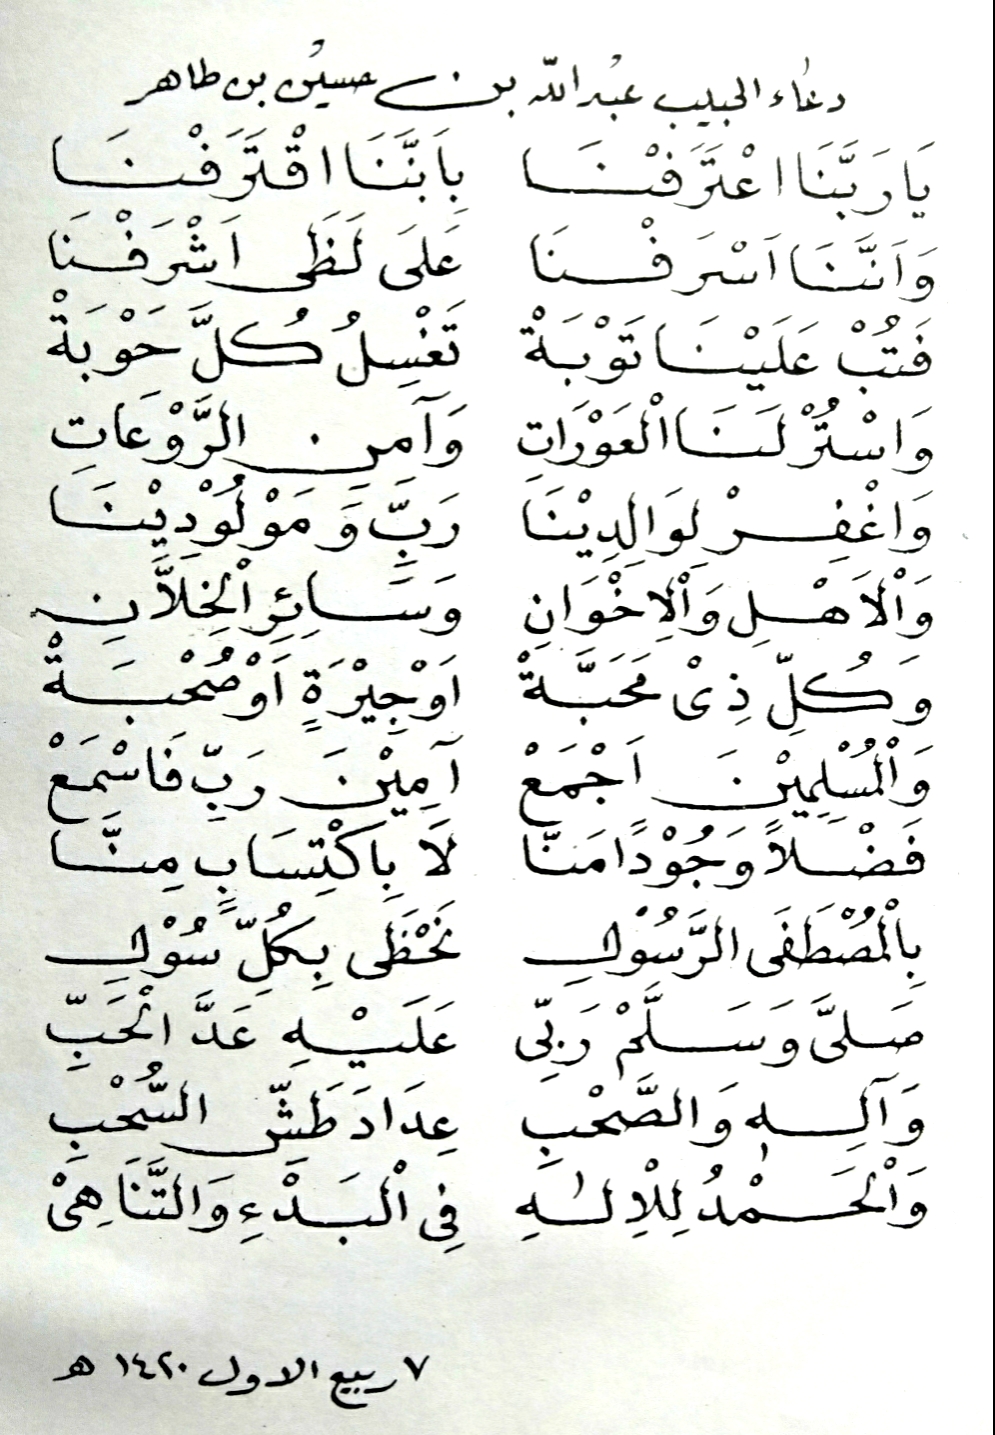 دعاء الحبيب عبد الله بن حسين بن طاهر
يَا رَبَّنَا اعْتَرَفْنَا بِاَنَّنَا اقْتَرَفْنَا
وَاَنَّنَا اَسْرَفْنَا عَلَى لَظَى اَشْرَفْنَا
فَتُبْ عَلَيْنَا تَوْبَةْ تَغْسِلُ كُلَّ حَوْبَةْ
وَاسْتُرْ لَنَا الْعَوْرَاتِ وَآمِنِ الرَّوْعَاتِ
وَاغْفِرْ لِوَالِدِيْنَا رَبِّ وَمَوْلُوْدِيْنَا
وَالْاَهْلِ وَالْاِخْوَانِ وَسَائِرِ الْخِلَّانِ
وَكُلِّ ذِىْ مَحَبَّةْ اَوْ جِيْرَةٍ اَوْ صُحْبَةْ
وَالْمُسْلِمِيْنَ اَجْمَعْ آمِيْنَ رَبِّ فَاسْمَعْ
فَضْلًا وَجُوْدًا مَنَّا لَا بِاكْتِسَابٍ مِنَّا
بِالْمُصْطَفَى الرَّسُوْلِ نَحْظَى بِكُلِّ سُوْلِ
صَلَّى وَسَلَّمْ رَبِّى عَلَيْهِ عَدَّ الْحَبِّ
وَآلِهِ وَالصَّحْبِ عِدَادَ طَشِّ السُّحْبِ
وَالْحَمْدُ لِلْاِلٰهِ فِى الْبَدْءِ وَالتَّنَاهِىْ
٧ ربيع الاول ١٤٢٠ هـ